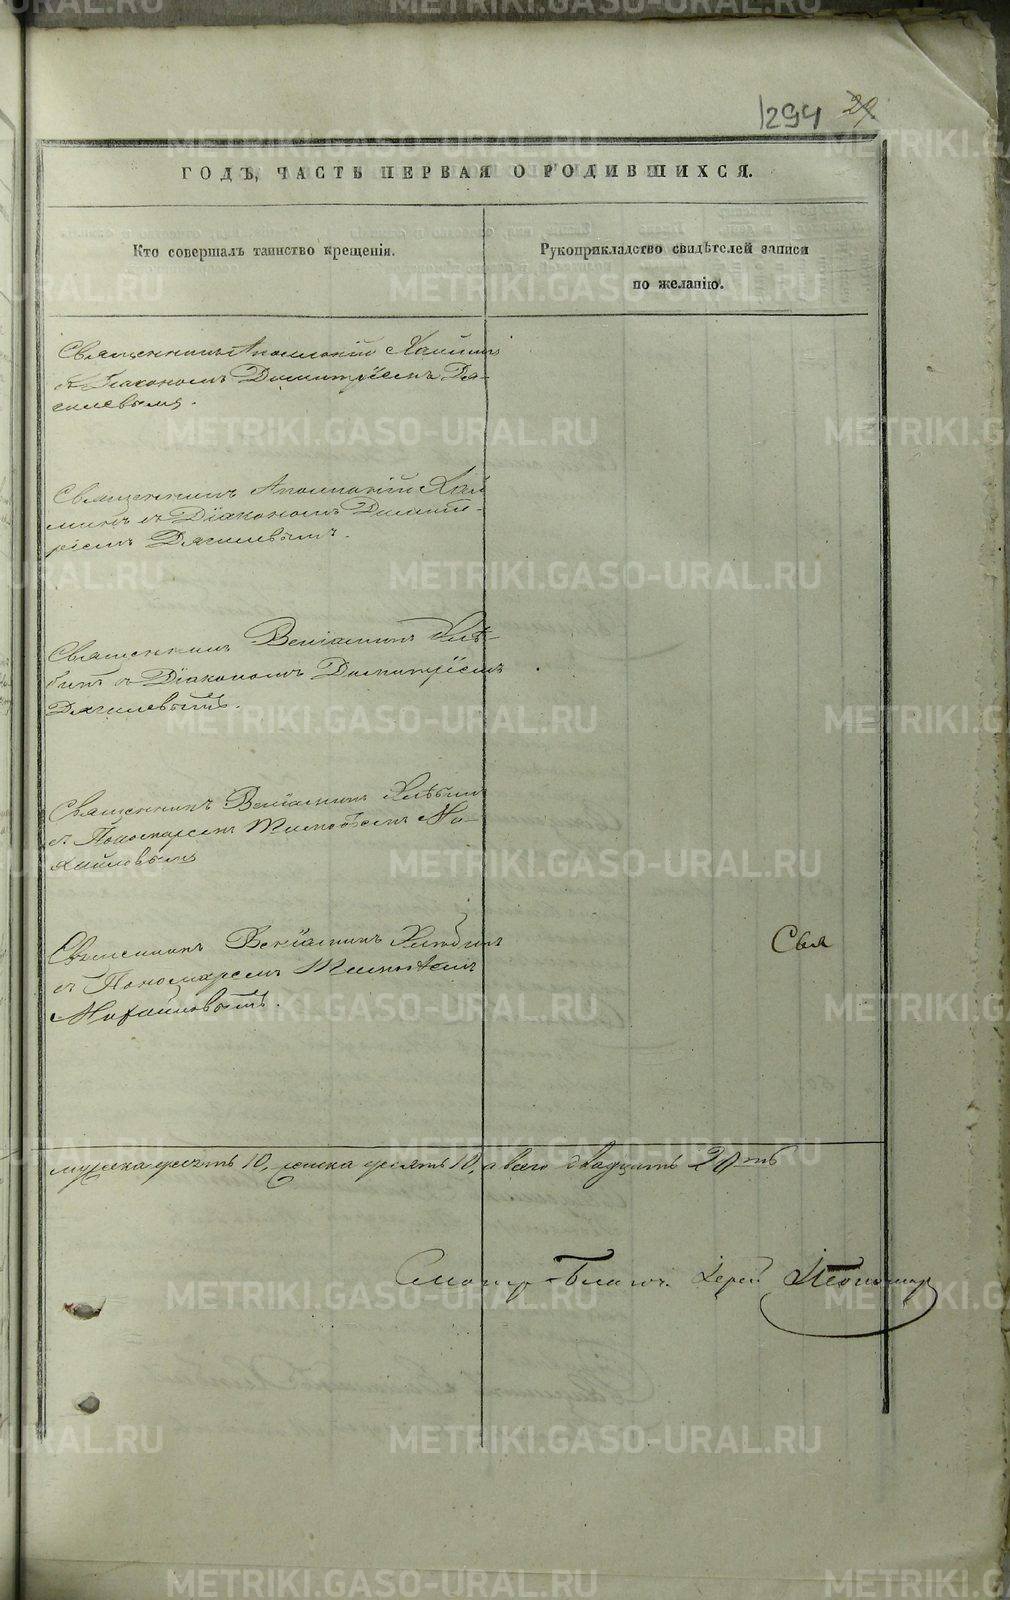 294 29
ГОДЪ, ЧАСТЬ ПЕРВАЯ О РОДИВШИХСЯ.
Кто совершалъ таинство крещенія.
Рукоприкладство свидѣтелей записи
по желанію.
Священникъ Аполлоній
съ Діакономъ Димитріемъ Дя-
гилевымъ.
Священникъ Аполлоній
съ Діакономъ Димит-
ріемъ Дягилевымъ.
Священникъ Веніаминъ Хлѣ-
бинъ съ Діакономъ Димитріемъ
Дягилевымъ.
Священникъ Веніаминъ Хлѣбинъ
съ Пономаремъ Тимоѳеемъ Ми-
хайловымъ
Священникъ Веніаминъ Хлѣбинъ
съ Пономаремъ Тимоѳеемъ
Михайловымъ.
мужеска десять 10, женска десять 10, а всего двадцать 20-ть
Благоч. Іерей
METRIKI.GASO-URAL.RU